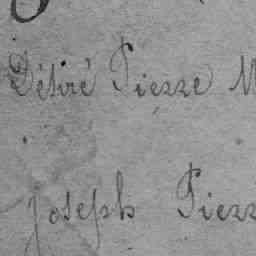 Désiré Pierre M
Joseph Pierr